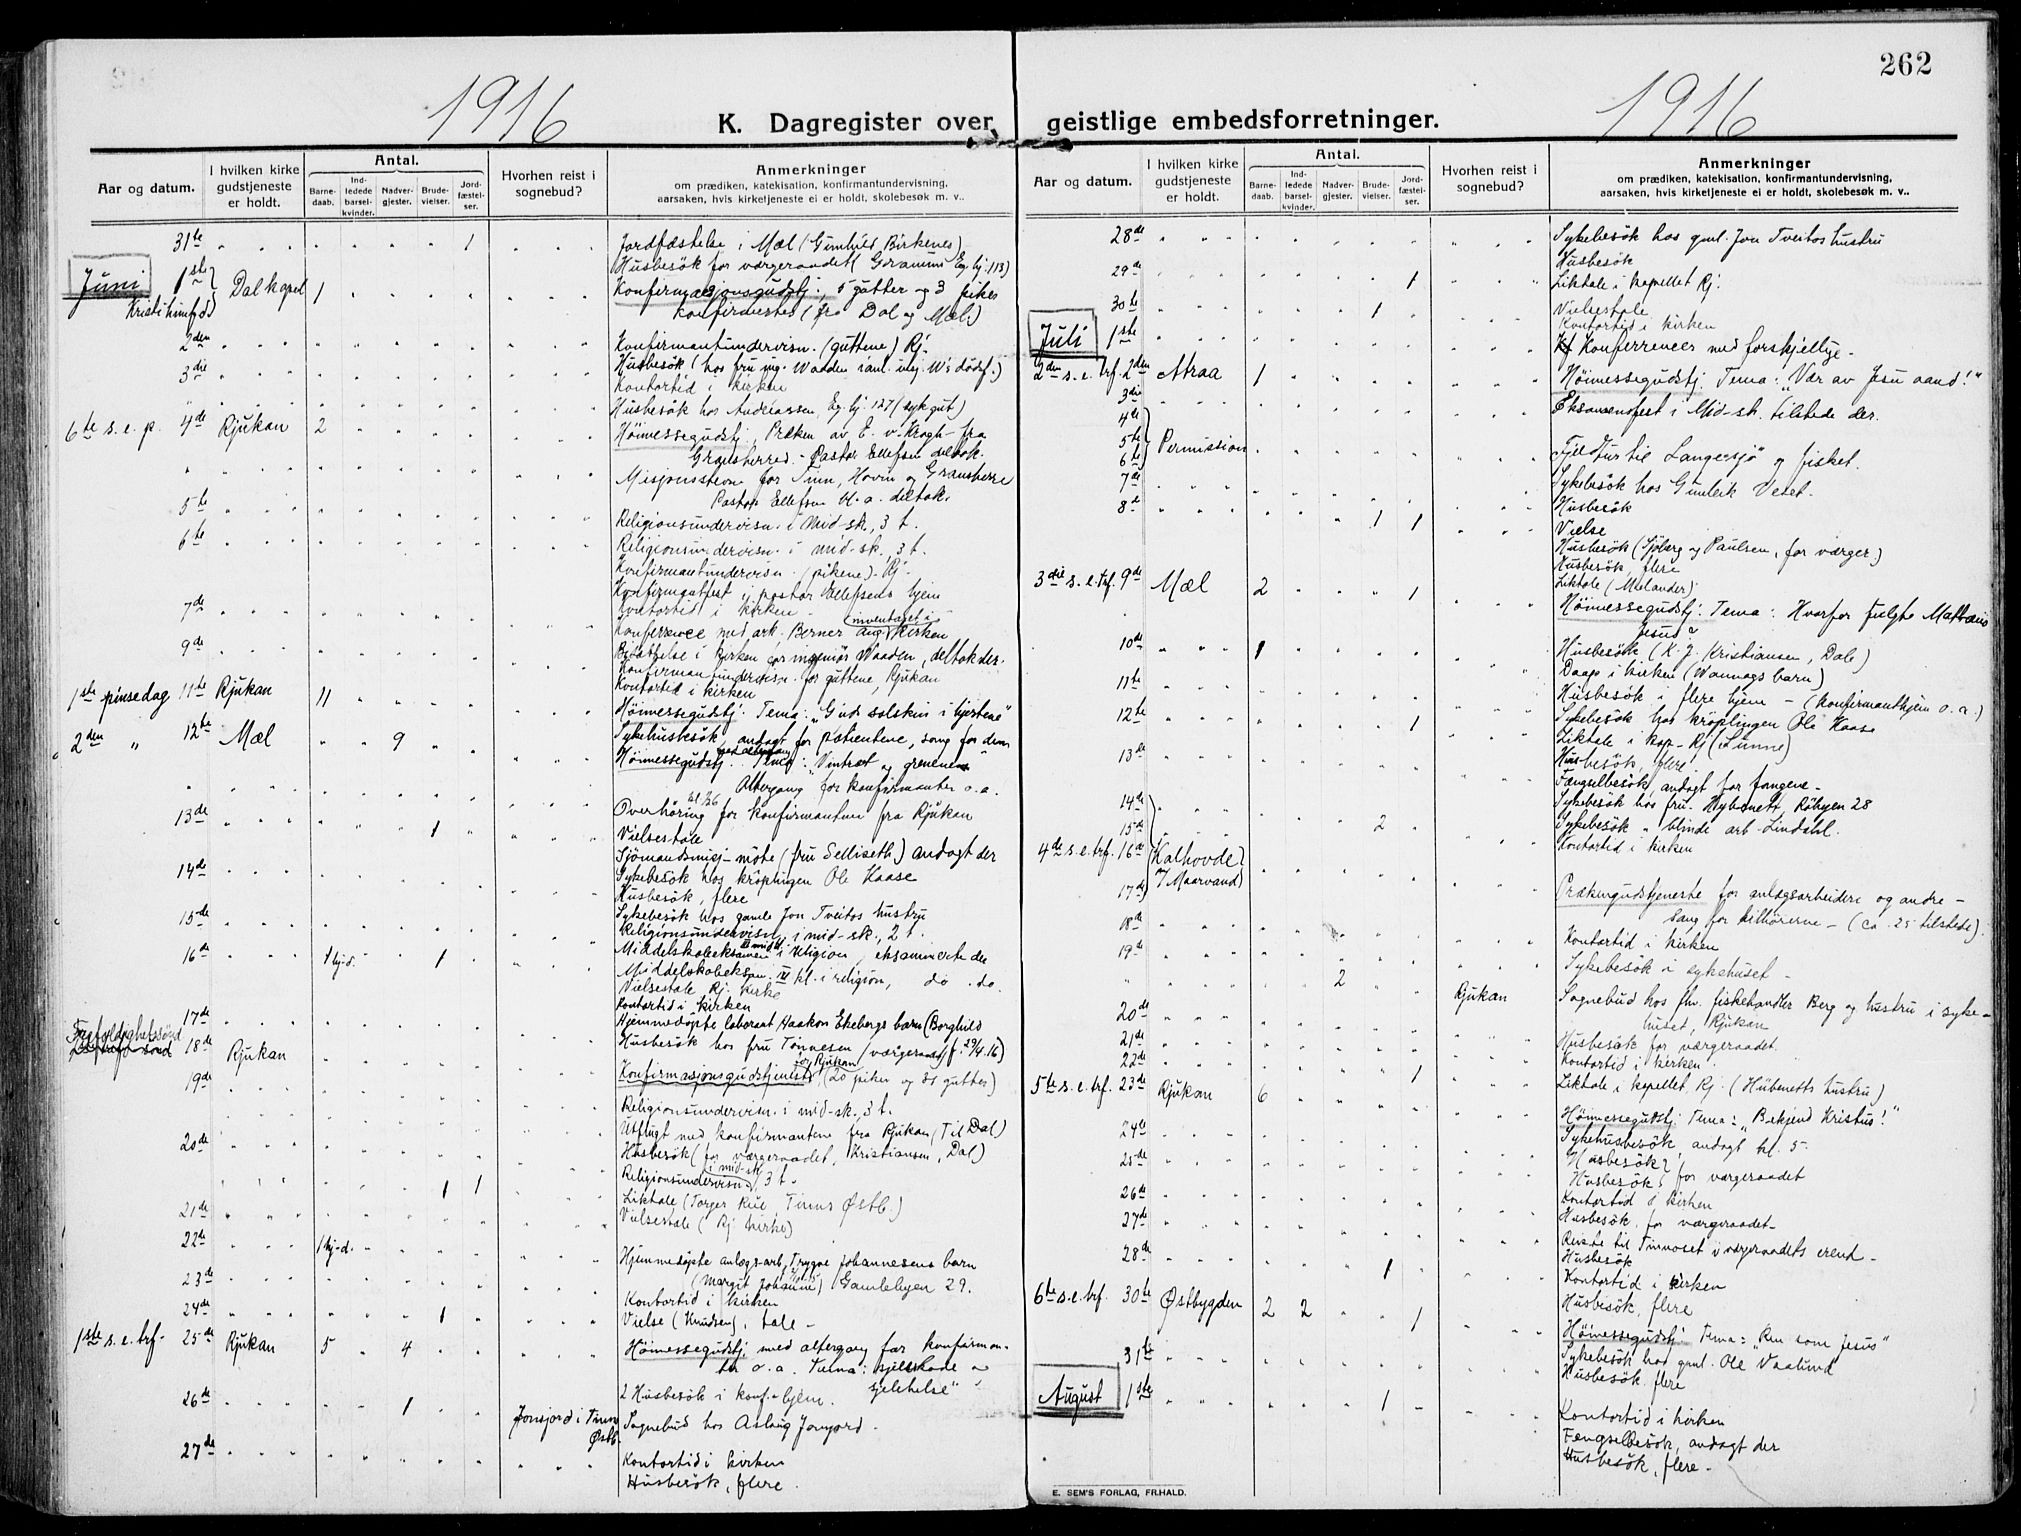 262
1916
1916
K. Dagregister over geistlige embedsforretninger.
Aar og datum.
I hvilken kirke gudstjeneste er holdt.
Antal.
Barne-daab.
Ind-ledede barsel-kvinder.
Nadver-gjester.
Brude-vielser.
Jord-fæstel-ser.
Hvorhen reist i sognebud?
Anmerkninger
om prædiken, katekisation, konfirmantundervisning,
aarsaken, hvis kirketjeneste ei er holdt, skolebesøk m. v..
31te 1 Jordfæstelse i Mæl (Gunhild Birkenes)
Husbesök for værgeraadet
Juni 1ste Dal kapel 1 Konfirmasjonsgudstj., 5 gutter og 3 piker
Kristi himf.d. konfirmertes (fra Dal og Mæl)
2den Konfirmantundervisn. (guttene) Rj.
3die Husbesök (hos fru ing. Waaden
Kontortid i kirken
Husbesök hos Eg. bj. 127 (syk gut)
6te s. e. p. 4de Rjukan 2 Höimessegudstj. Præken av E. v. Krogh fra
Gransherred. - Pastor Ellefsen deltok.
Misjonsstevne for Tinn, Hovin og Gransherre
Pastor Ellefsen bl. a. deltok.
5te Religionsundervisn. i Mid-sk., 3 t.
6te Religionsundervisn. i mid-sk., 3 t.
Konfirmantundervisn. (pikene) - Rj.
Konfirmantfest i pastor Ellefsens hjem
7de Kontortid i kirken
Konferance med ark. Berner ang. inventaret i kirken
9de Bisættelse i kirken for ingeniör Waaden, deltok der.
Konfirmantundervisn. for guttene, Rjukan
Kontortid i kirken
1ste pinsedag 11te Rjukan 11 Höimessegudstj. Tema: „Guds solskin i hjertene"
Sykehusbesök, andagt for patientene, sang for dem
2den " 12te Mæl 9 Höimessegudstj. Tema: „Vintræt og grenene"
Altergang for konfirmanter o. a.
Overhöring for konfirmantene fra Rjukan
13de 1 Vielsestale
Sjömandsmisj-möte (fru Selliseth) andagt der
14de Sykebesök hos kröplingen Ole Kaase
Husbesök, flere
15de Sykebesök hos gamle Jon Tveitos hustru
Religionsundervisn. i mid-sk., 2 t.
16de 1 hj-d. 1 Middelskoleeksamen i religion, eksaminerte der
Middelskoleeksam. IV kl. i religion, do. do.
Vielsestale Rj. kirke
Kontortid i kirken
17de Hjemmedöpte laborant Haakon Ekebergs barn (Borghild
Husbesök hos fru Tönnesen (værgeraad
Trefoldighetssönd 18de Rjukan Konfirmasjonsgudstjeneste for Rjukan (20 piker og 31 gutter)
19de Religionsundervisn. i mid-sk. 3 t.
Utflugt med konfirmantene fra Rjukan (Til Dal)
20de Husbesök (for værgeraadet, Kristiansen, Dal)
Religionsundervisn. i mid-sk. 3 t.
1 1 Liktale (Torger Rue, Tinns Østb.)
21de Vielsestale (Rj. kirke)
22de 1 hj-d. Hjemmedöpte anlægs-arb. Trygve Johannesens barn
(Margit Johanne) Gamlebyen 29.
23de Kontortid i kirken
24de 1 Vielse (Knudsen), tale -
1ste s. e. trf. 25de Rjukan 5 4 Höimessegudstj. med altergang for konfirman-
ter o. a. Tema:
26de 1 2 Husbesök i konf.-hjem.
Jonsjord i Tinn Østb. Sognebud hos Aslaug Jonsjord.
27de Kontortid i kirken
Husbesök, flere.
Aar og datum.
I hvilken kirke gudstjeneste er holdt.
Antal.
Barne-daab.
Ind-ledede barsel-kvinder.
Nadver-gjester.
Brude-vielser.
Jord-fæstel-ser.
Hvorhen reist i sognebud?
Anmerkninger
om prædiken, katekisation, konfirmantundervisning,
aarsaken, hvis kirketjeneste ei er holdt, skolebesøk m. v..
28de Sykebesök hos gml. Jon Tveitos hustru
Husbesök
29de 1 Liktale i kapellet Rj.
30te 1 Vielsestale
Kontortid i kirken
Juli 1ste Konferrencer med forskjellige -
2den s. e. trf. 2den Atraa 1 Höimessegudstj. Tema: „Vær av Jesu aand!"
3die Eksamensfest i Mid-sk. tilstede der.
4de
5te Permission
6te Fjeldtur til Langesjö og fisket.
7de Sykebesök hos Gunleik
8de 1 1 Husbesök
Vielse
Husbesök (Sjöberg og Paulsen, for værger.)
Husbesök, flere
3die s. e. trf. 9de Mæl 2 1 Liktale (Melander)
Höimessegudstj. Tema: Hvorfor fulgte Mattæus
Jesus?
10de 1 Husbesök (K. J. Kristiansen, Dale)
Daap i kirken (Wannags barn)
11te Husbesök i flere hjem - (konfirmanthjem o. a.)
12te 1 Sykebesök hos kröplingen Ole Kaase
Liktale i kap. Rj (Lunne)
13de Husbesök, flere
Fængselbesök, andagt for fangene -
14de Sykebesök hos fru Röbyen 28
15de 2 Sykebesök " blinde arb. Lindahl.
Kontortid i kirken
4de s. e. trf. 16de (Kalhovde)
17de /Maarvand) Prækengudstjeneste for anlægsarbeidere og andre -
sang for tilhörerne - (ca. 25 tilstede).
18de Kontortid i kirken
19de Sykebesök i sykehuset -
2 Rjukan Sognebud hos fhv. fiskehandler Berg og hustru i syke-
huset, Rjukan
20de Husbesök for værgeraadet.
21de Kontortid i kirken
22de 1 Liktale i kapellet Rj. (Hübenetts hustru)
5te s. e. trf. 23de Rjukan 6 Höimessegudstj. Tema: „Bekjend Kristus!"
Sykehusbesök, andagt kl. 5.
24de Husbesök
25de Husbesök for værgeraadet
26de Kontortid i kirken
27de Husbesök for værgeraadet
Reiste til Tinnoset i værgeraadets erend -
28de 1 Husbesök
Kontortid i kirken
Husbesök, flere
6te s. e. trf. 30te Østbygden 2 2 1 Höimessegudstj. Tema: „Ren som Jesus"
Sykebesök hos gml. Ole Vaalund
31te Husbesök. flere
August 1ste 1 Kontortid i kirken
Fængselbesök, andagt der
Husbesök, flere -
E. SEM'S FORLAG, FR.HALD.